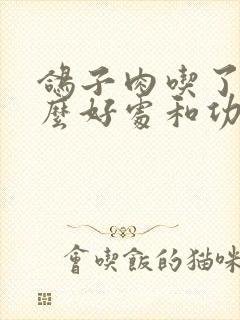 鴿子肉喫了
麼好處和功
會喫飯的猫咪